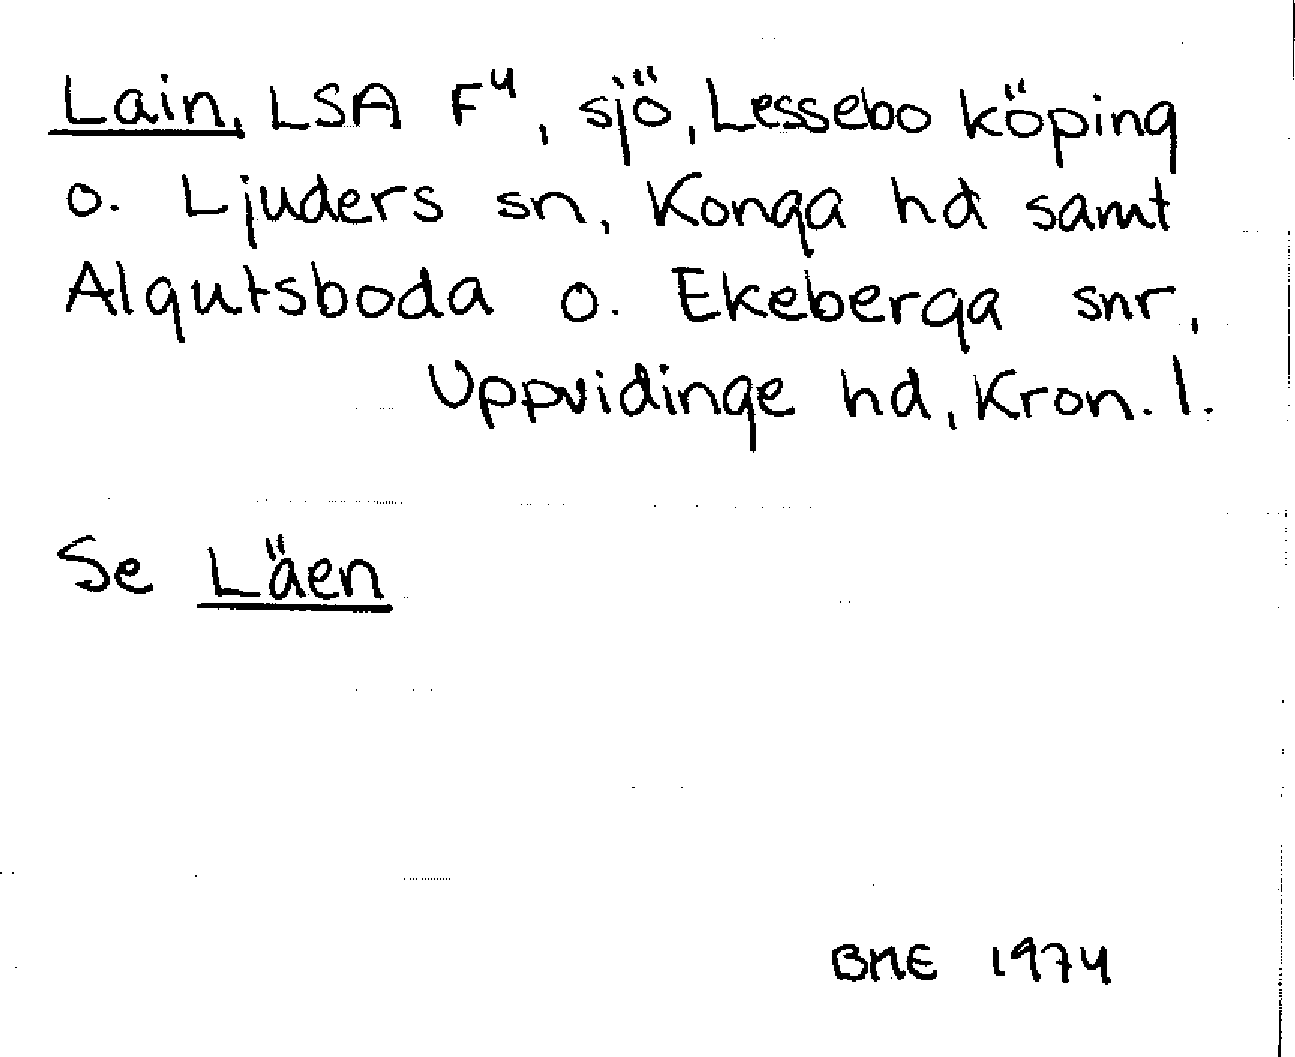 Lain, LSA F⁴, sjö, Lessebo köping
o. Ljuders sn, Konga hd samt
Algutsboda o. Ekeberga snr,
Uppvidinge hd, Kron. l.
Se Läen
BME 1974